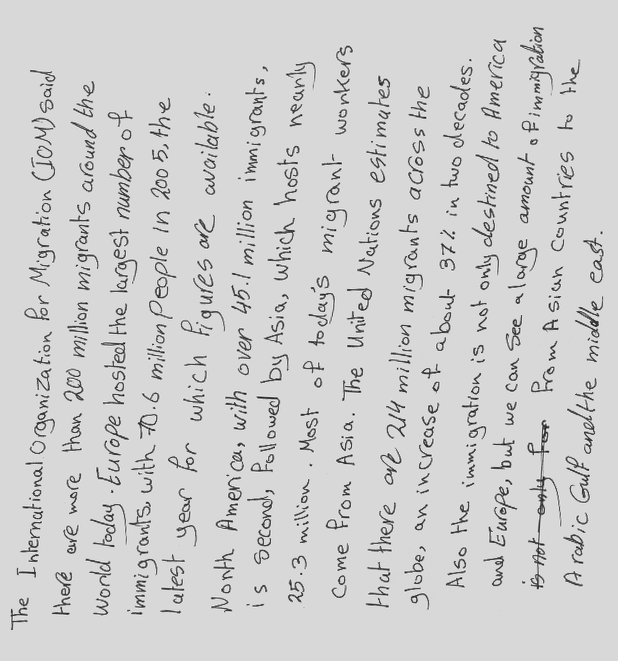 The International Organization for Migration (IOM) said
there are more than 200 million migrants around the
world today. Europe hosted the largest number of
immigrants, with 70.6 million people in 2005, the
latest year for which figures are available.
North America, with over 45.1 million immigrants,
is second, followed by Asia, which hosts nearly
25.3 million. Most of today's migrant workers
come from Asia. The United Nations estimates
that there are 214 million migrants across the
globe, an increase of about 37% in two decades.
Also the immigration is not only destined to America
and Europe, but we can see a large amount of immigration
is not only for from Asian countries to the
Arabic Gulf and the middle east.